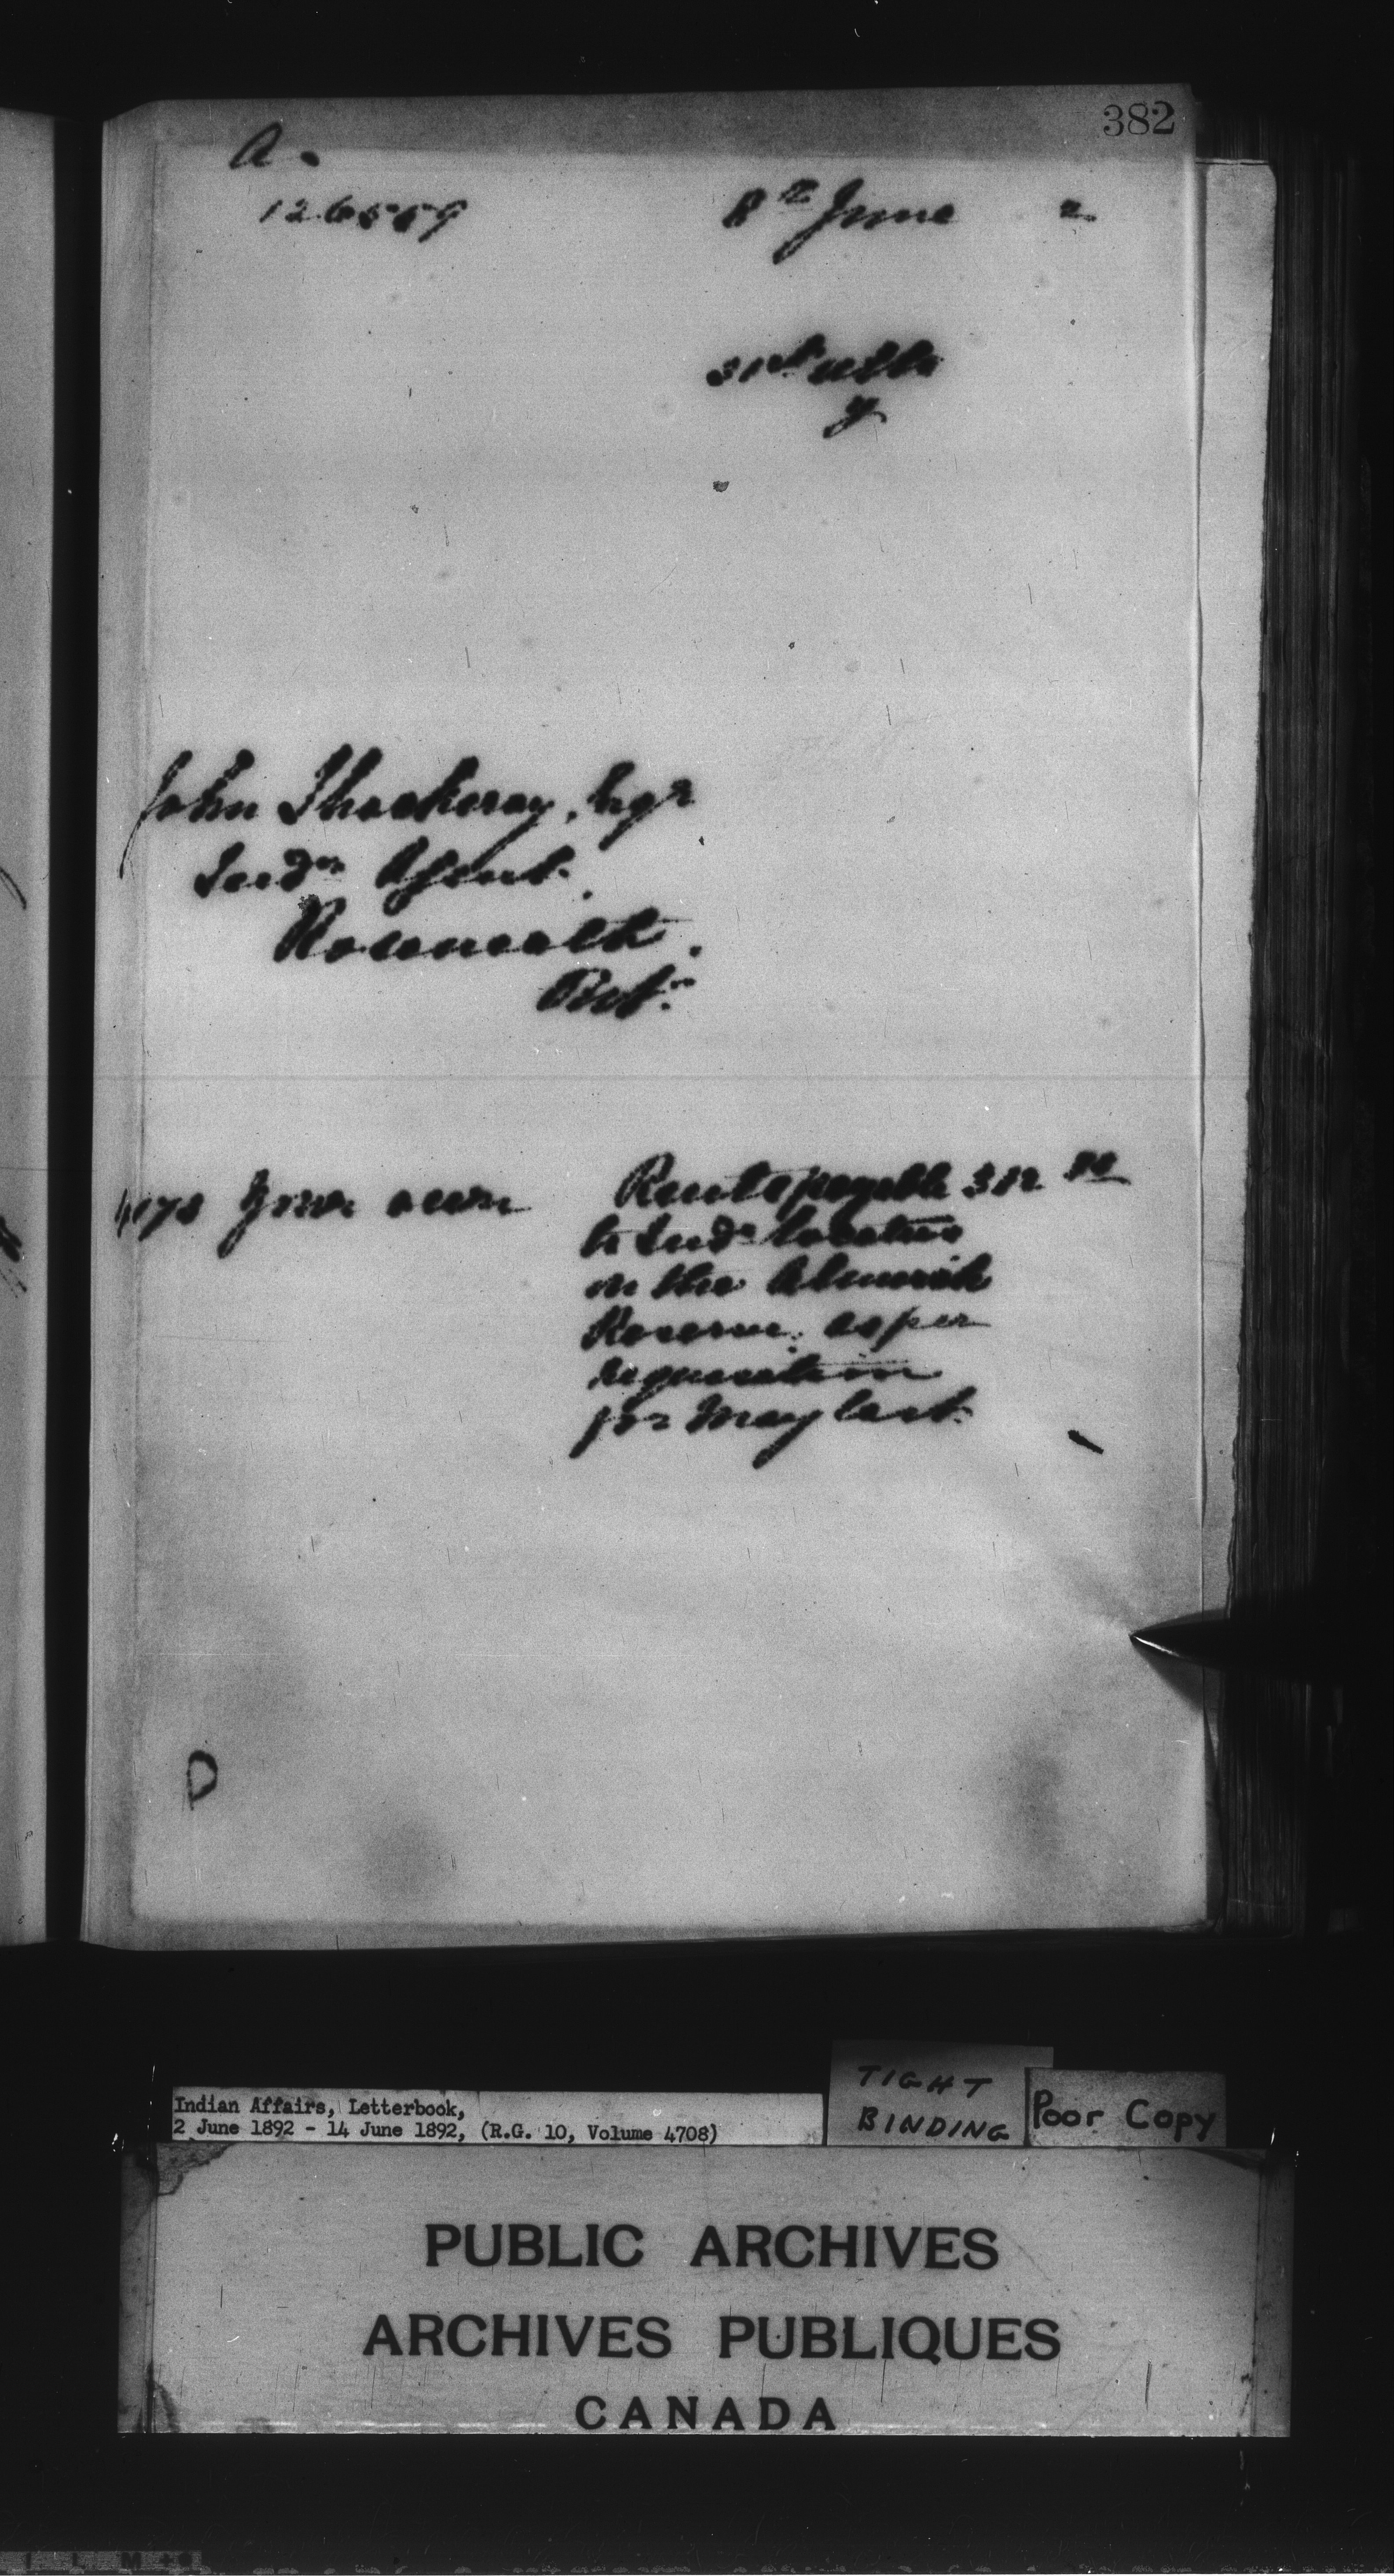 382
A.
126559
8th June 2
31st ulto
y
John Thackeray, Esqr
Indn Agent.
Roseneath.
Ont.
4178 Your own Rents payable 312 50
to Indn locatees
on the Alnwick
Reserve, as per
requisition
for May last.
D
Indian Affairs, Letterbook,
2 June 1892 - 14 June 1892, (R.G. 10, Volume 4708)
TIGHT
BINDING
Poor Copy
PUBLIC ARCHIVES
ARCHIVES PUBLIQUES
CANADA